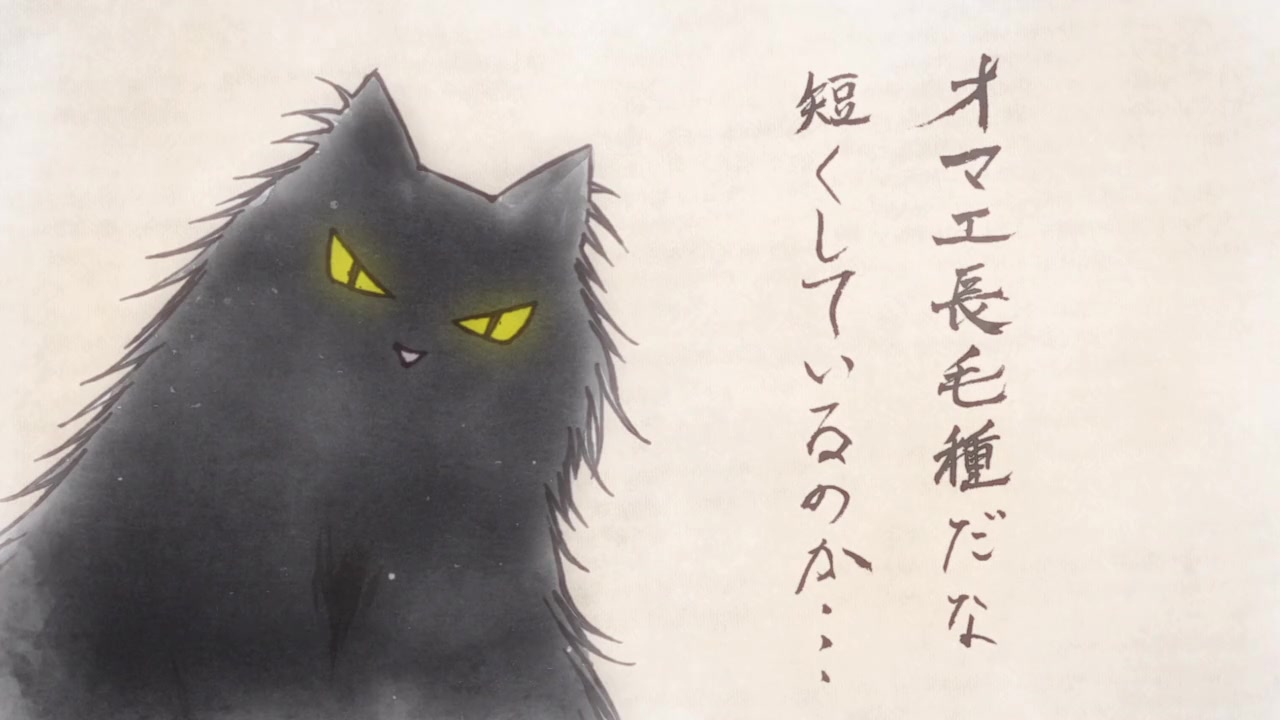 オマエ長毛種だな
短くしているのか・・・